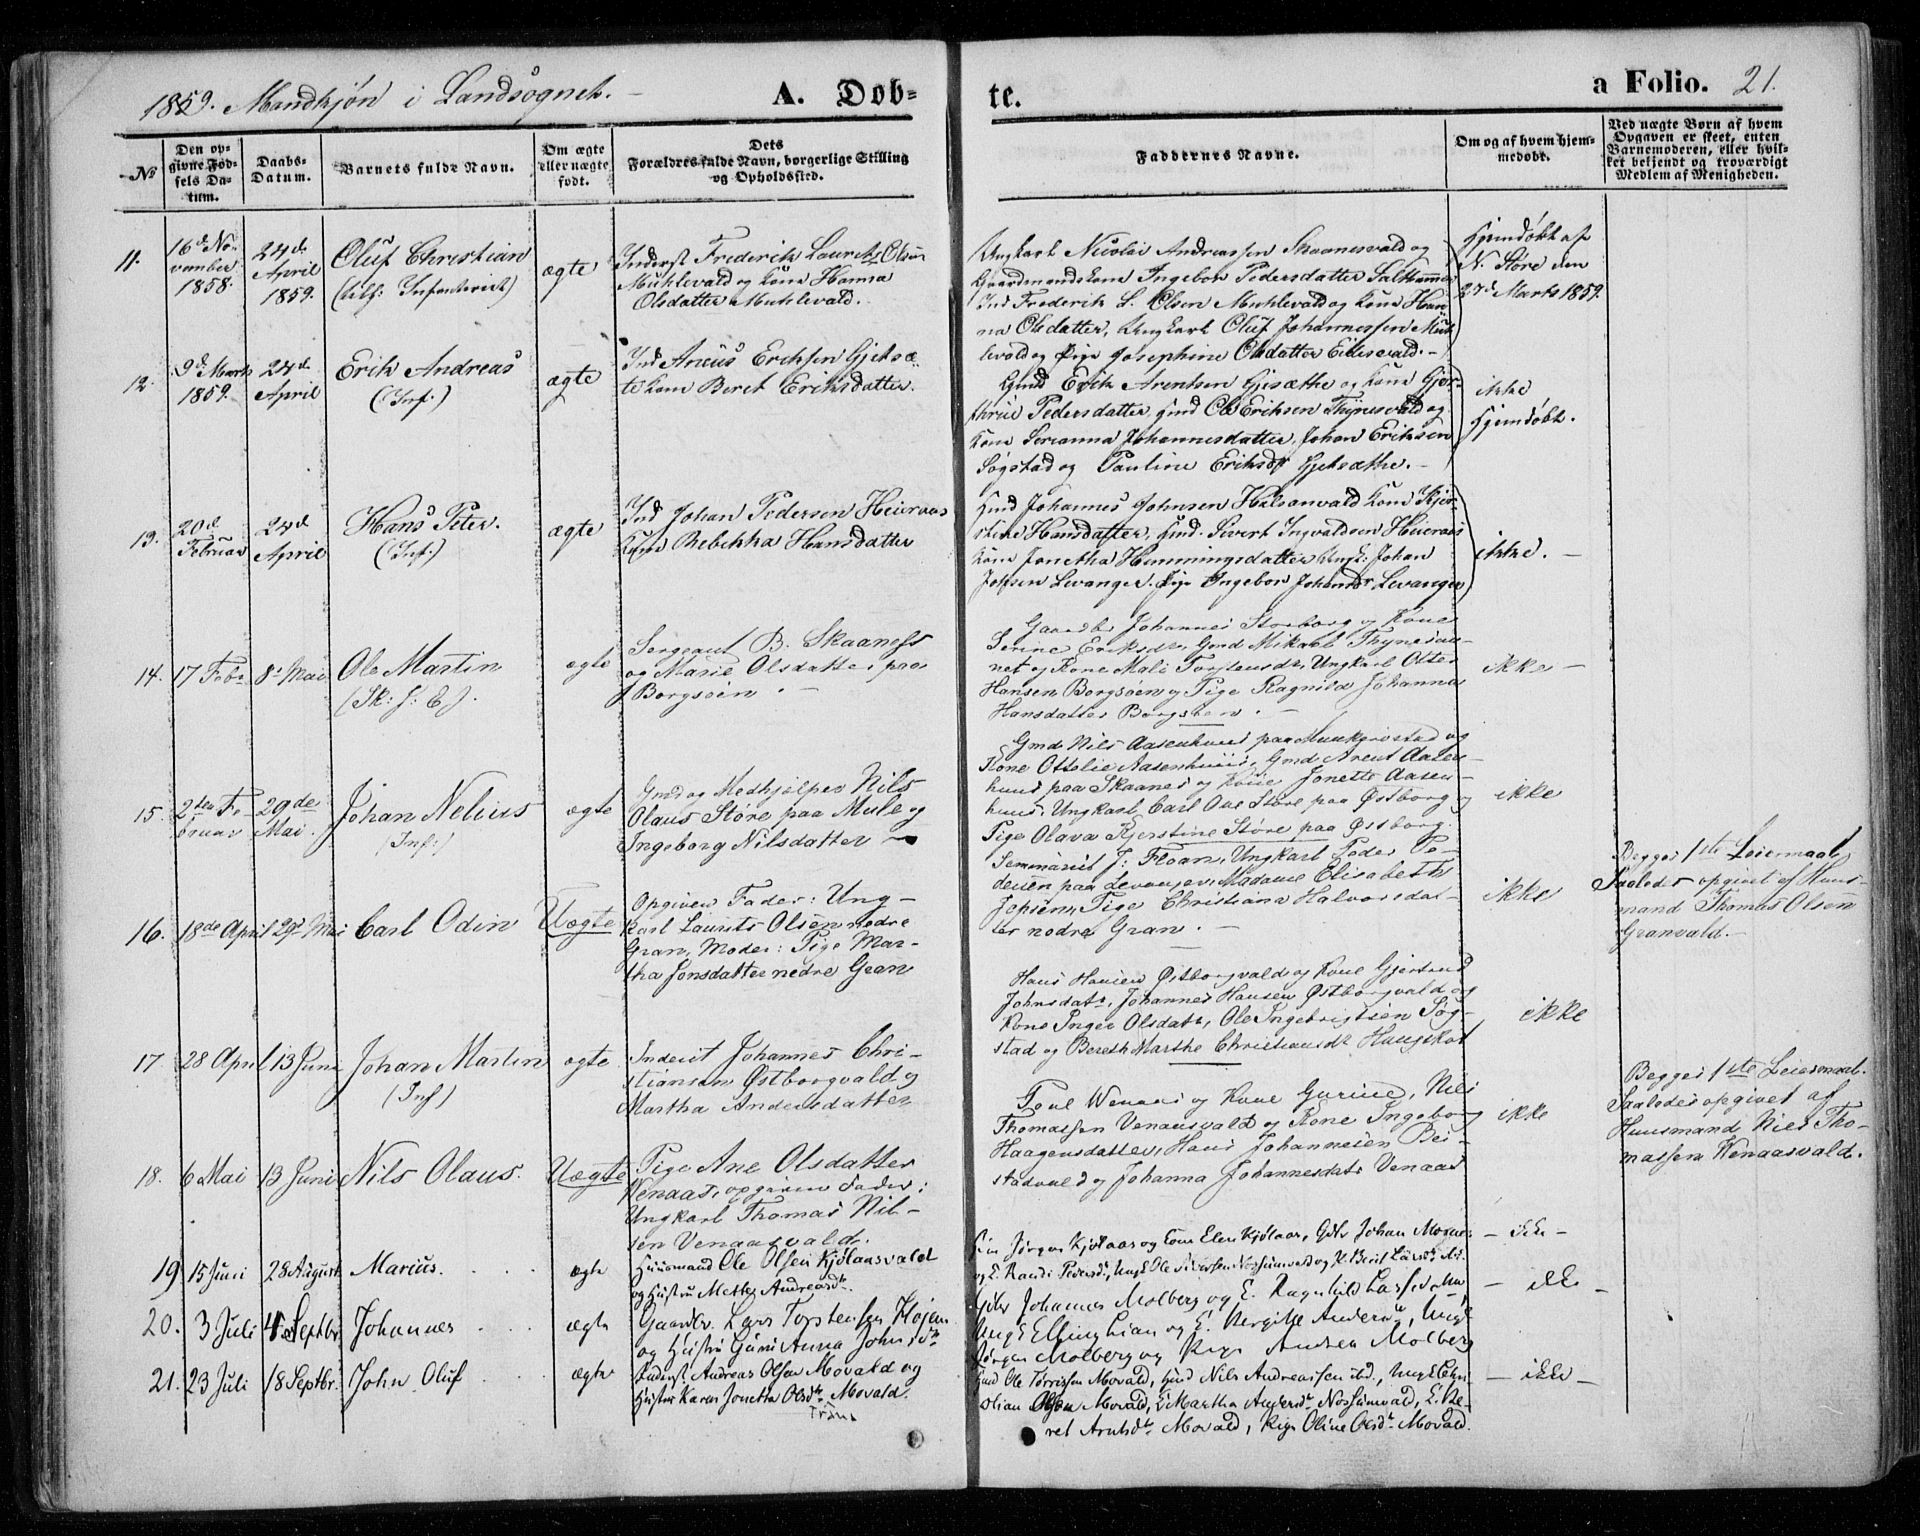 1859. Mandkjøn i Landsognet. –
A. Døb-
te.
a Folio. 21.
No
Den op-
givne Fød-
sels Da-
tum.
Daabs-
Datum.
Barnets fulde Navn.
Om ægte
eller uægte
født.
Dets
Forældres fulde Navn, borgerlige Stilling
og Opholdssted.
Faddernes Navne.
Om og af hvem hjem-
medøbt.
Ved uægte Børn af hvem
Opgaven er skeet, enten
Barnemoderen, eller hvil-
ket bekjendt og troværdigt
Medlem af Menigheden.
11.
16d No-
vember
1858.
24d
April
1859.
Oluf Christian
ægte
Inderst Frederik Laurits Olsen
Muhlevald og Kone Hanna
Olsdatter Muhlevald.
Ungkarl Nicolai Andreassen Skaanesvald og
Gaardmandskone Ingebor Pedersdatter Salthammer
Ind Frederik L. Olsen Muhlevald og Kone Han-
na Olsdatter, Ungkarl Oluf Johannessen Muh-
levald og Pige Josephine Olsdatter Eidesvald. –
Hjemdøbt af
N. Støre den
27d Marts 1859.
12.
9d Marts
1859.
24d
April
Erik Andreas
(Inf:)
ægte
Ind Areus Eriksen Gjetsæ-
te Kone Beret Eriksdatter.
Gmd Erik Arentsen Gjisæthe og Kone Gjer-
thrue Pedersdatter, Hmd Ole Eriksen Thynesvald og
Kone Serianna Johannesdatter, Johan Eriksen
Søgstad og Pauline Eriksdr Gjetsæthe. –
ikke
Hjemdøbt.
13.
20d
Februar
24d
April
Hans Peter.
(Inf:)
ægte
Ind Johan Pedersen Heieraas
Kone Rebekka Hansdatter
Hmd Johannes Johnsen Halsanvald Kone Kjer-
stine Hansdatter, Hmd. Sivert Ingvaldsen Heieraas
Kone Jonetha Hemmingsdatter Ungk: Johan
Jepsen Levanger. Pige Ingebor Johansdr Levanger
ikke. –
14.
17 Febr
8d Mai
Ole Martin
(Sk: f: E).
ægte
Sergeant B. Skaaness
og Marie Olsdatter paa
Borgsøen. –
Gaardbr Johannes Storborg og Kone
Serine Eriksdr, Gmd Mikael Thynesau-
net og Kone Mali Torstensdr, Ungkarl Otter
Hansen Borgsøen og Pige Ragnild Johanna
Hansdatter Borgsøen. –
ikke –
15.
2den Fe-
bruar
29de
Mai.
Johan Nelius
(Inf:)
ægte
Gmd og Medhjelper Nils
Olaus Støre paa Mule og
Ingeborg Nilsdatter –
Gmd Nils Aasenhuus paa Munkerøstad og
Kone Ottelie Aasenhuus, Gmd Arent Aasen-
huus paa Skaanes og Kone Jonette Aasen-
huus, Ungkarl Carl Ove Støre paa Østborg og
Pige Olava Kjerstine Støre paa Østborg.
ikke
16.
18de April
29d Mai
Carl Odin
Uægte
Opgiven Fader: Ung-
karl Laurits Olsen nedre
Gran, Moder: Pige Mar-
tha Jonsdatter nedre Gran
Seminarist J: Floan, Ungkarl Peder Pe-
dersen paa Levanger, Madame Elisabeth
Jepsen, Pige Christiana Halvorsdat-
ter nedre Gran. –
ikke
Begges 1ste Leiermaal
Saaledes opgivet af Huus-
mand Thomas Olsen
Granvald. –
17
28 April
13 Juni
Johan Martin
(Inf)
ægte
Inderst Johannes Chri-
stiansen Østborgvald og
Martha Andersdatter
Hans Hansen Østborgvald og Kone Gjertrud
Johnsdatr, Johannes Hansen Østborgvald og
Kone Inger Olsdatr, Ole Ingebrigtsen Søg-
stad og Bereth Marthe Christiansdr Haugskot
ikke
18.
6 Mai
13 Juni
Nils Olaus.
Uægte
Pige Ane Olsdatter
Venaas, opgiven Fader:
Ungkarl Thomas Nil-
sen Venaasvald.
Poul Wenaas og Kone Gurine, Nils
Thomassen Venaasvald og Kone Ingeborg
Haagensdatter, Hans Johannesen Bei-
stadvald og Johanna Johannesdatr Venaas
ikke
Begges 1ste Leiermaal.
Saaledes opgivet af
Huusmand Nils Tho-
massen Wenaasvald.
19
15 Juni
28 August
Marius.
ægte
Huusmand Ole Olsen Kjølaasvald
og Hustru Mette Andreasdr
Jørgen Kjølaas og Kone Elen Kjølaas, Gdbr Johan Movald
og E. Randi Pedersdr, Ungk Ole Sivertsen Nossumvald og P. Berit Larsdr
– ikke –
20.
3 Juli
4 Septbr
Johannes
ægte
Gaardbr. Lars Torstensen Højem
og Hustru Guri Anna Johnsdr
Gdbr Johannes Molberg og E. Ragnhild
Ungk Elling Lian og E. Bergitte Andersdr, Ungk
Jørgen Molberg og Pige Andrea Molberg
– ikke –
21.
23 Juli
18 Septbr.
John Oluf
ægte
Inderst Andreas Olsen Movald og
Hustru Karen Jonetha Olsdr Movald.
Hmd Ole Tørrissen Movald, Hmd Nils Andreassen ibd., Ungk Chri-
stian Olsen Movald, E. Martha Andersdr Nossumvald, E. Be-
ret Arntsdr Movald, Pige Oline Olsdr Movald.
– ikke –